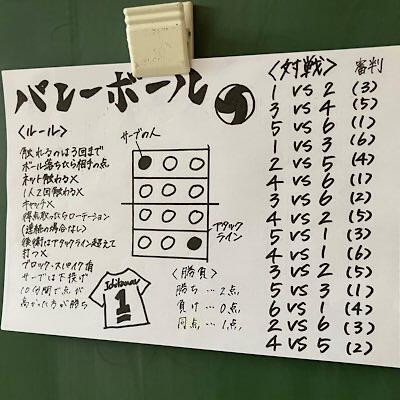 バレーボール
<ルール>
触れるのは3回まで
ボール落ちたら相手の点
ネット触わる×
1人2回触わる×
キャッチ×
得点取ったらローテーション
(連続の場合なし)
後衛はアタックライン超えて
打つ×
ブロック・スパイク有
サーブは下投げ
10分間で点が
高かった方が勝ち
サーブの人
アタック
ライン
1
<勝負>
勝ち…2点
負け…0点
同点…1点
<対戦> 審判
1 vs 2 (3)
3 vs 4 (5)
5 vs 6 (1)
1 vs 3 (6)
2 vs 5 (4)
4 vs 6 (1)
3 vs 6 (2)
4 vs 2 (5)
5 vs 1 (3)
4 vs 1 (6)
3 vs 2 (5)
5 vs 3 (1)
6 vs 1 (4)
2 vs 6 (3)
4 vs 5 (2)